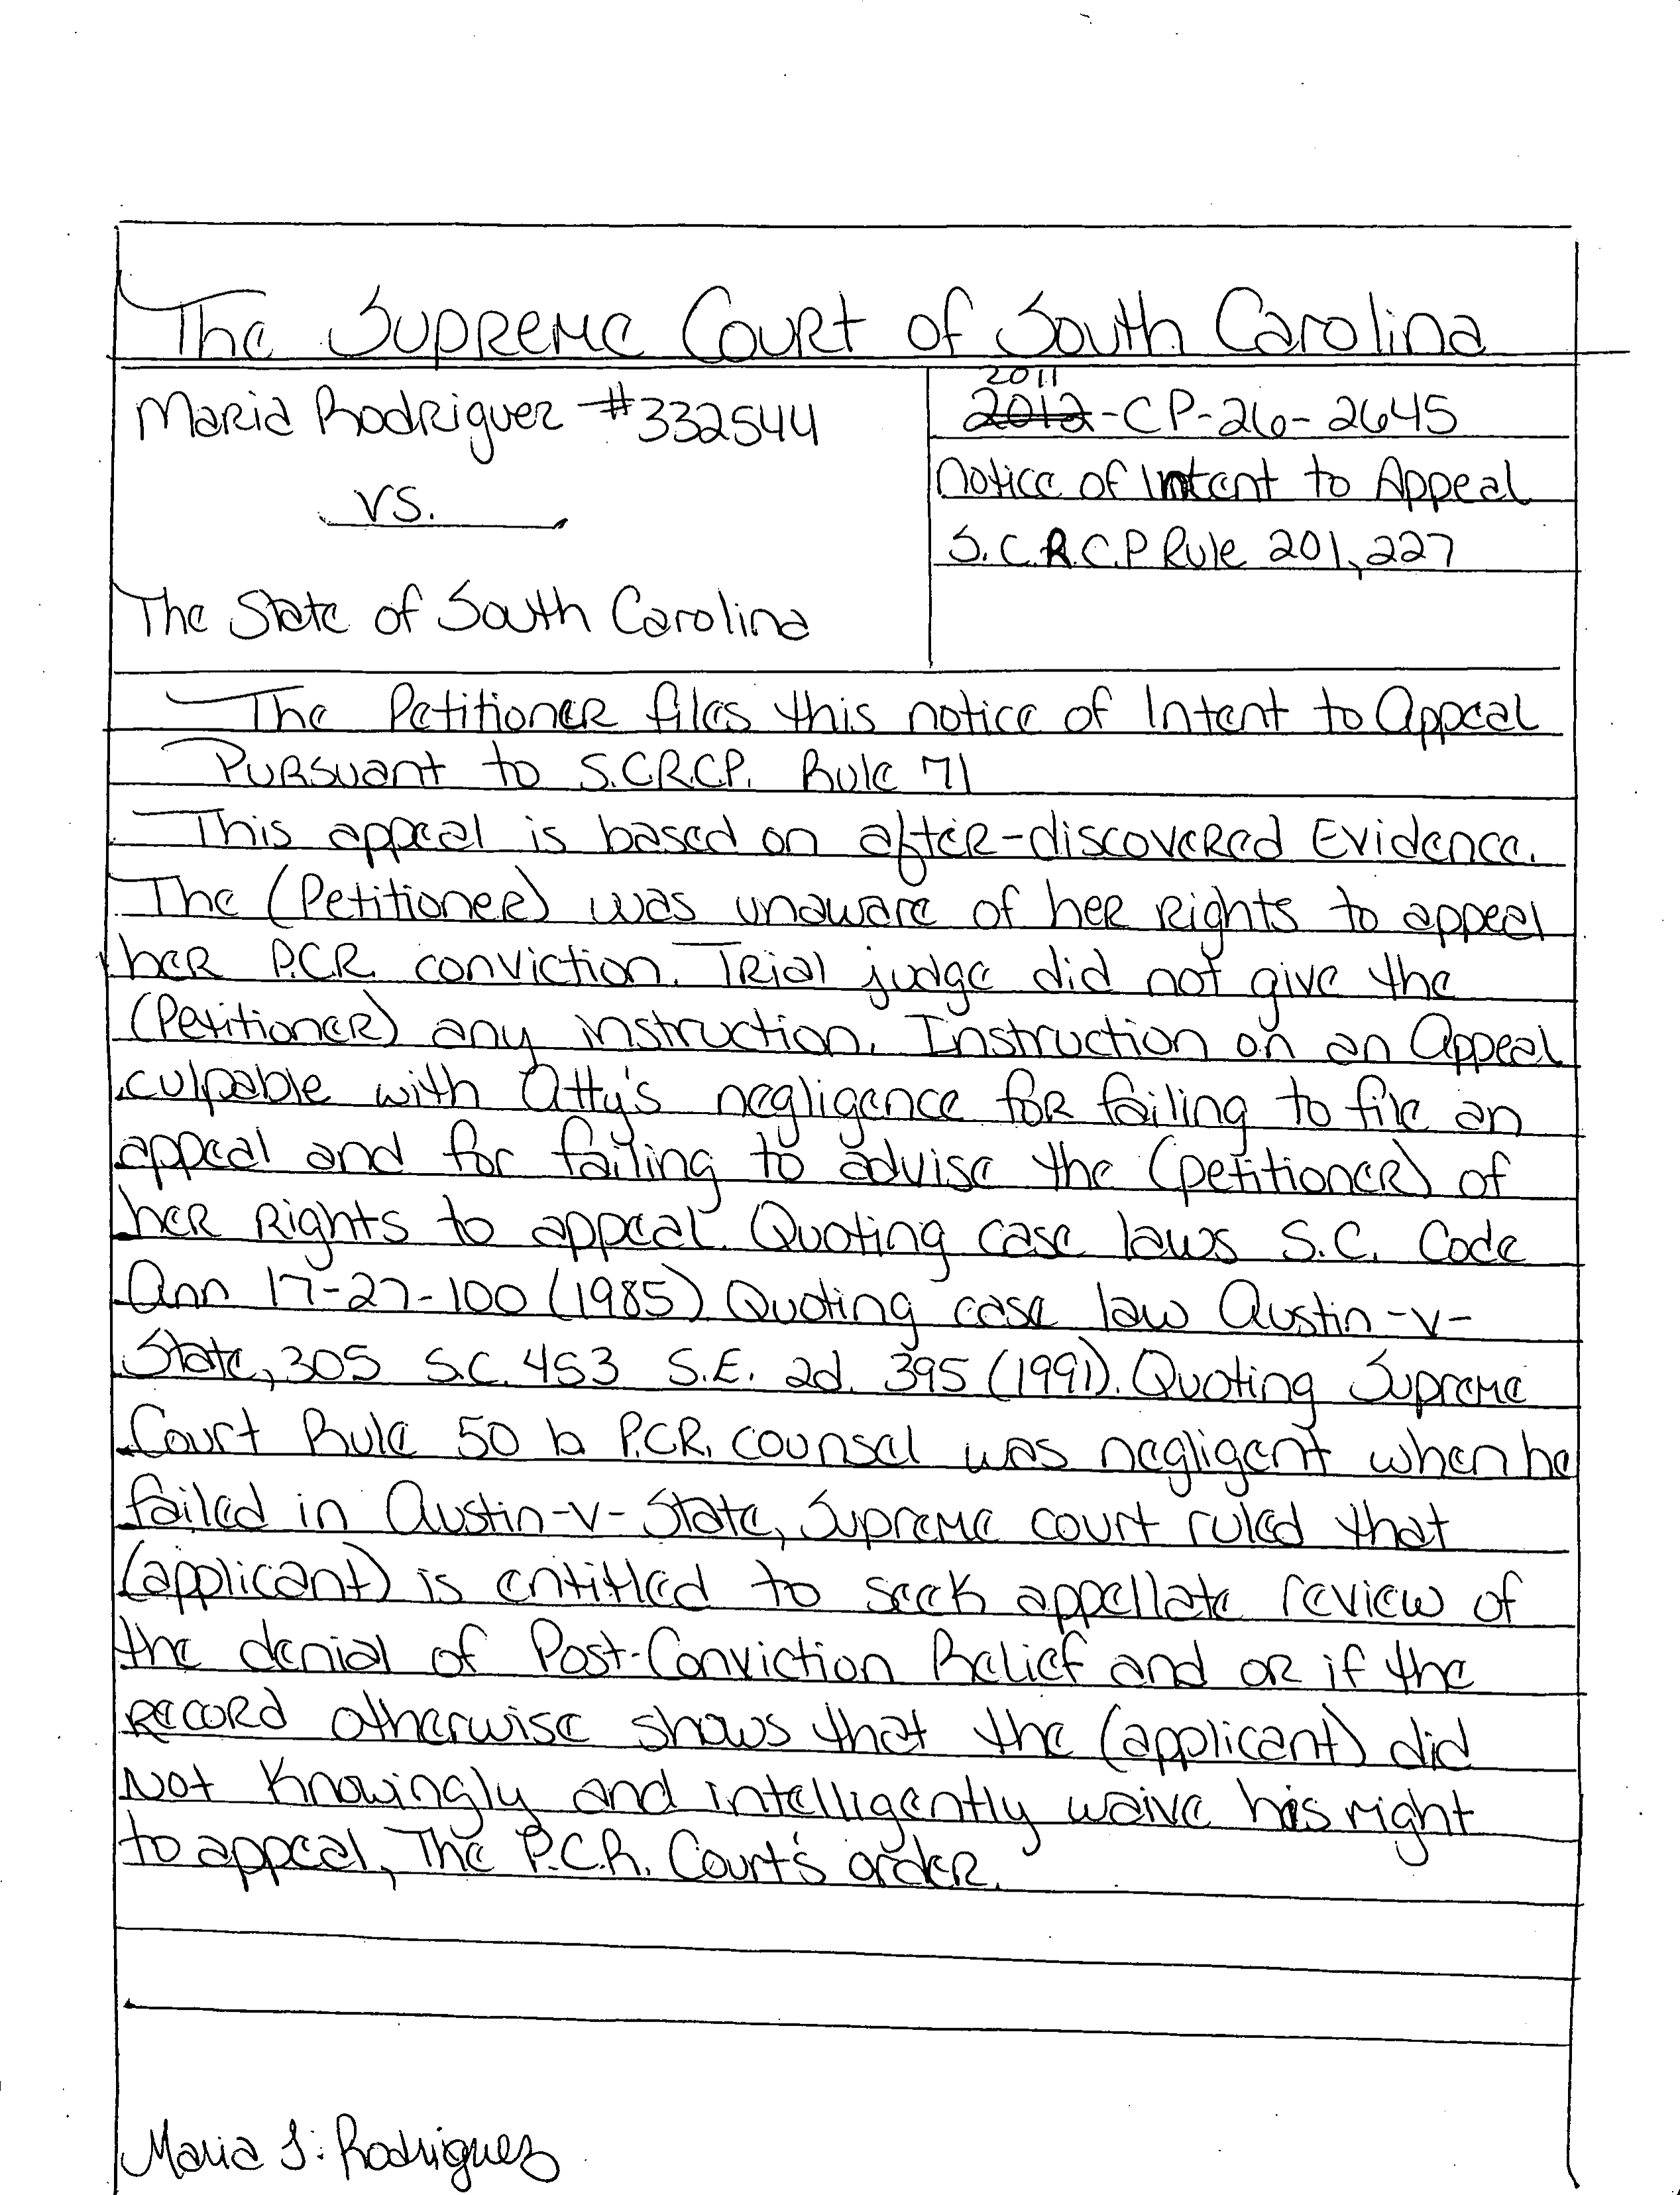 The Supreme Court of South Carolina
Maria Rodriguez #332544
vs.
The State of South Carolina
2011
2012-CP-26-2645
Notice of Intent to Appeal
S.C.R.C.P Rule 201,227
The Petitioner files this notice of Intent to Appeal
Pursuant to S.C.R.C.P. Rule 71
This appeal is based on after-discovered Evidence.
The (Petitioner) was unaware of her rights to appeal
her P.C.R. conviction. Trial judge did not give the
(Petitioner) any instruction. Instruction on an Appeal
culpable with Atty's negligence for failing to file an
appeal and for failing to advise the (petitioner) of
her Rights to appeal. Quoting case laws S.C. Code
Ann 17-27-100 (1985). Quoting case law Austin -v-
State, 305 S.C. 453 S.E. 2d. 395 (1991). Quoting Supreme
Court Rule 50 b P.C.R. counsel was negligent when he
failed in Austin-v-State, Supreme court ruled that
(applicant) is entitled to seek appellate review of
the denial of Post-Conviction Relief and or if the
record otherwise shows that the (applicant) did
Not Knowingly and intelligently waive his right
to appeal, The P.C.R. Court's order.
Maria J. Rodriguez